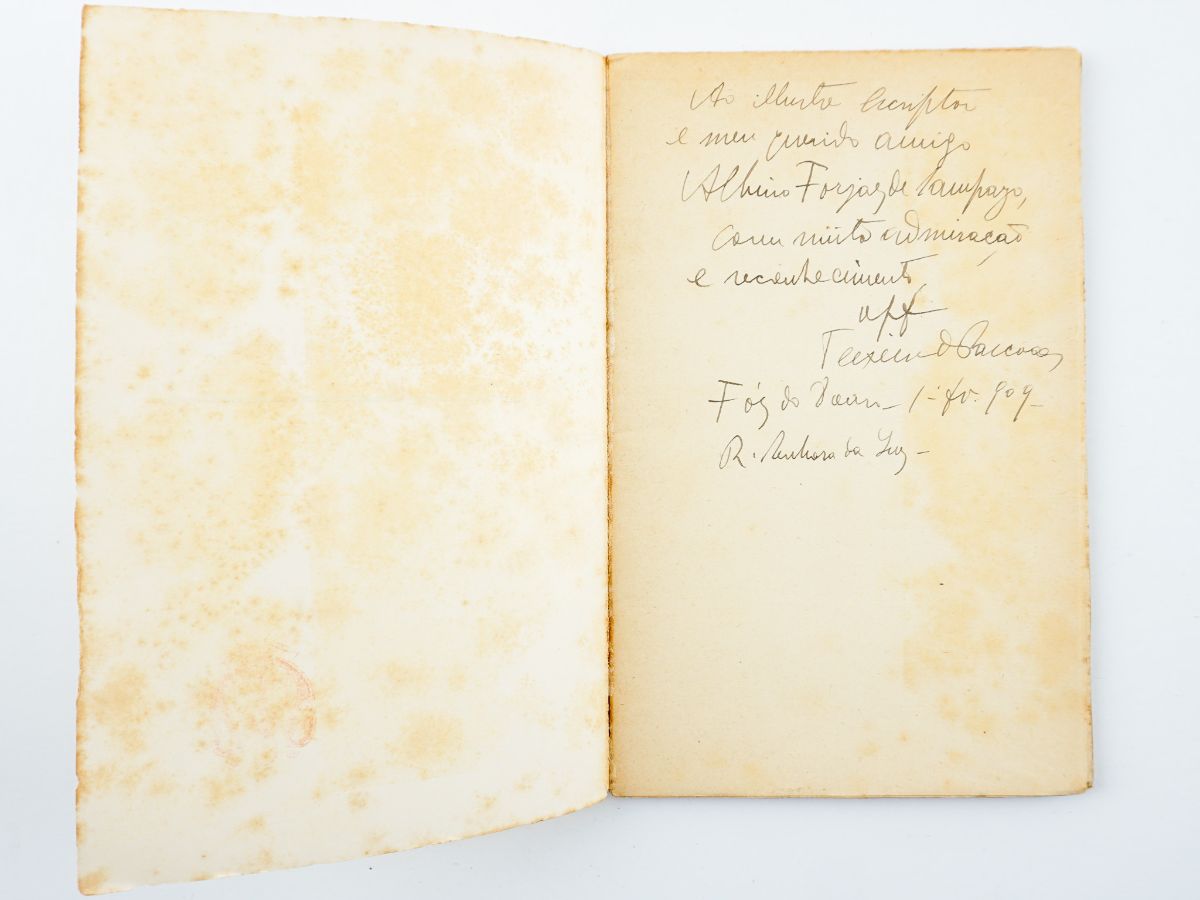 Ao illustre Escriptor
e meu querido amigo
Albino Forjaz de Sampayo,
com muita admiração
e reconhecimento,
off
Teixeira de Pascoaes
Fóz do Douro - 1 - fv. 909 -
R. Senhora da Luz -